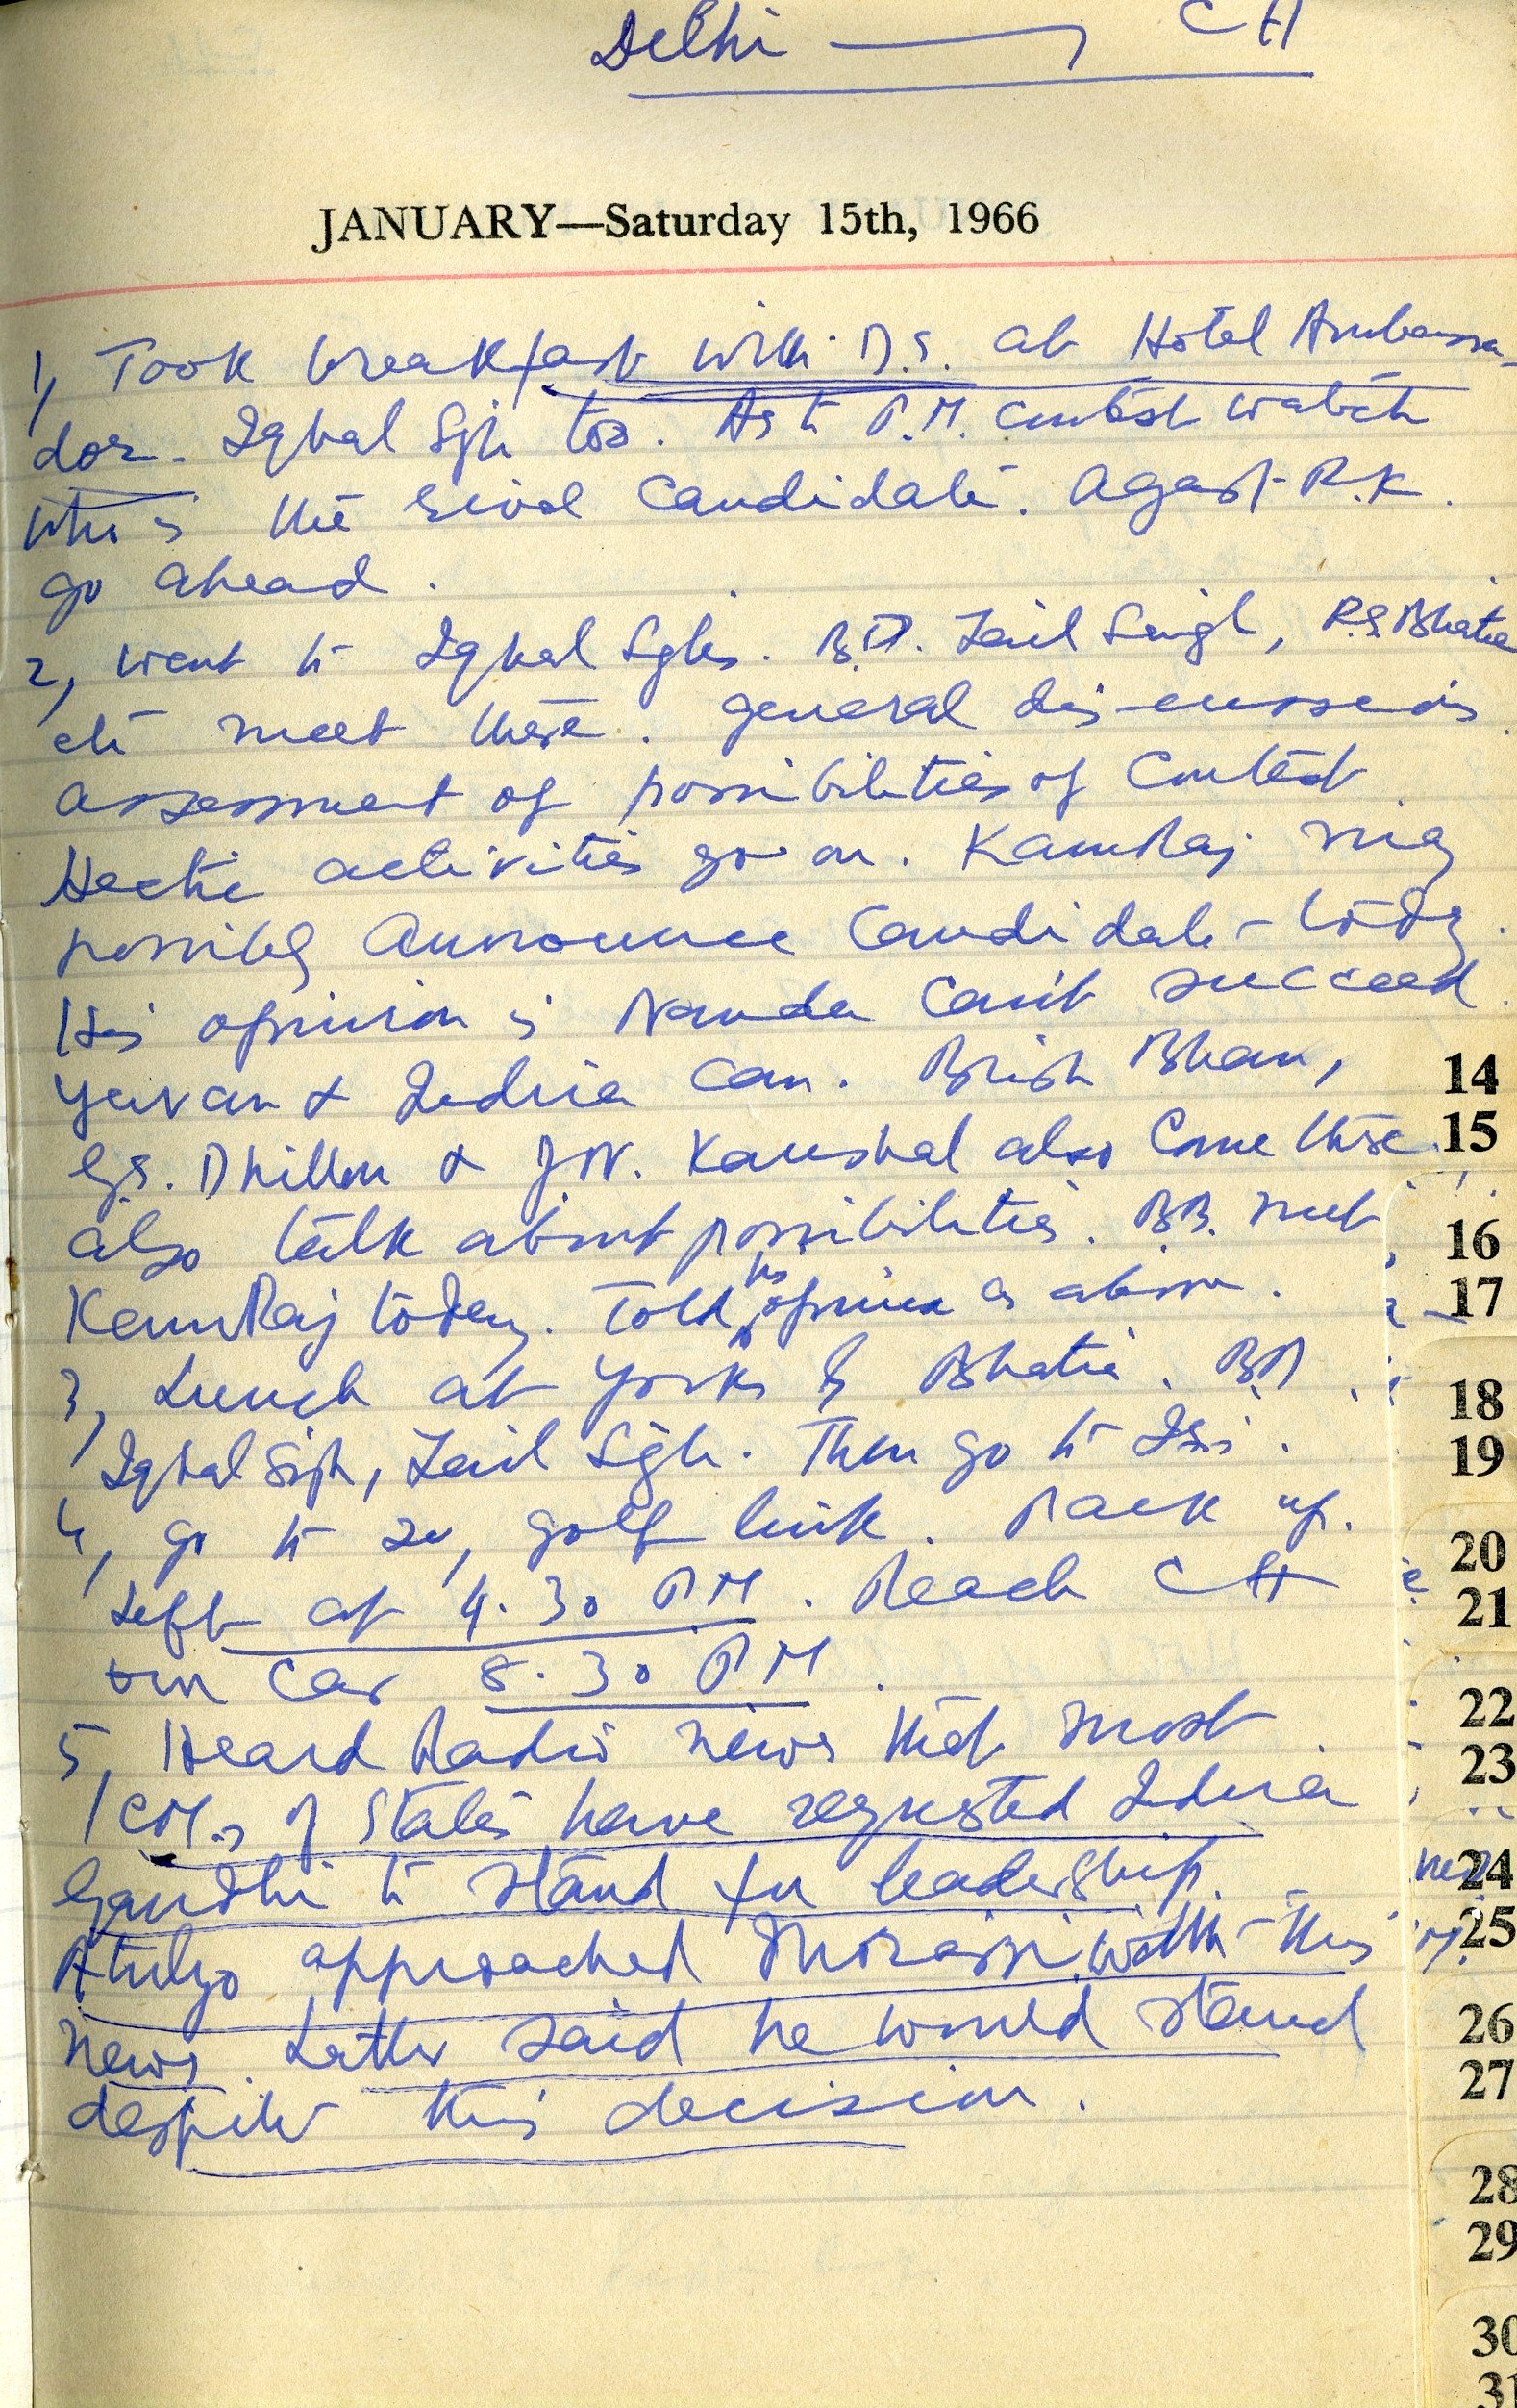 Delhi → CH
JANUARY—Saturday 15th, 1966
1, Took breakfast with D.S. at Hotel Ambassa-
dor. Iqbal Sgh too. As to P.M. contest watch
who is the rival candidate. Agast R.K.
go ahead.
2, went to Iqbal Sghs. B.D. Zail Singh, R.S. Bhatia
etc meet there. general discussions
assessment of possibilities of contest
Hectic activities go on. KamRaj may
possibly announce candidate today.
His opinion is Nanda can't succeed
Yavan & Indira can. Brish Bhan,
G.S. Dhillon & J.N. Kaushal also come there
also talk about possibilities. B.B. met
KamRaj today. Told his opinion as above.
3, Lunch at Yorks by Bhatia. B.D.
Iqbal Sigh, Zail Sgh. Then go to
4, go to 20, golf link. Pack up.
Left at 4.30 PM. Reach CH
own car 8.30 PM.
5, Heard Radio news that most
CM.s of States have requested Indira
Gandhi to stand for leadership.
Atulyo approached Morarji with this
news. Latter said he would stand
despite this decision.
14
15
16
17
18
19
20
21
22
23
24
25
26
27
28
29
30
31